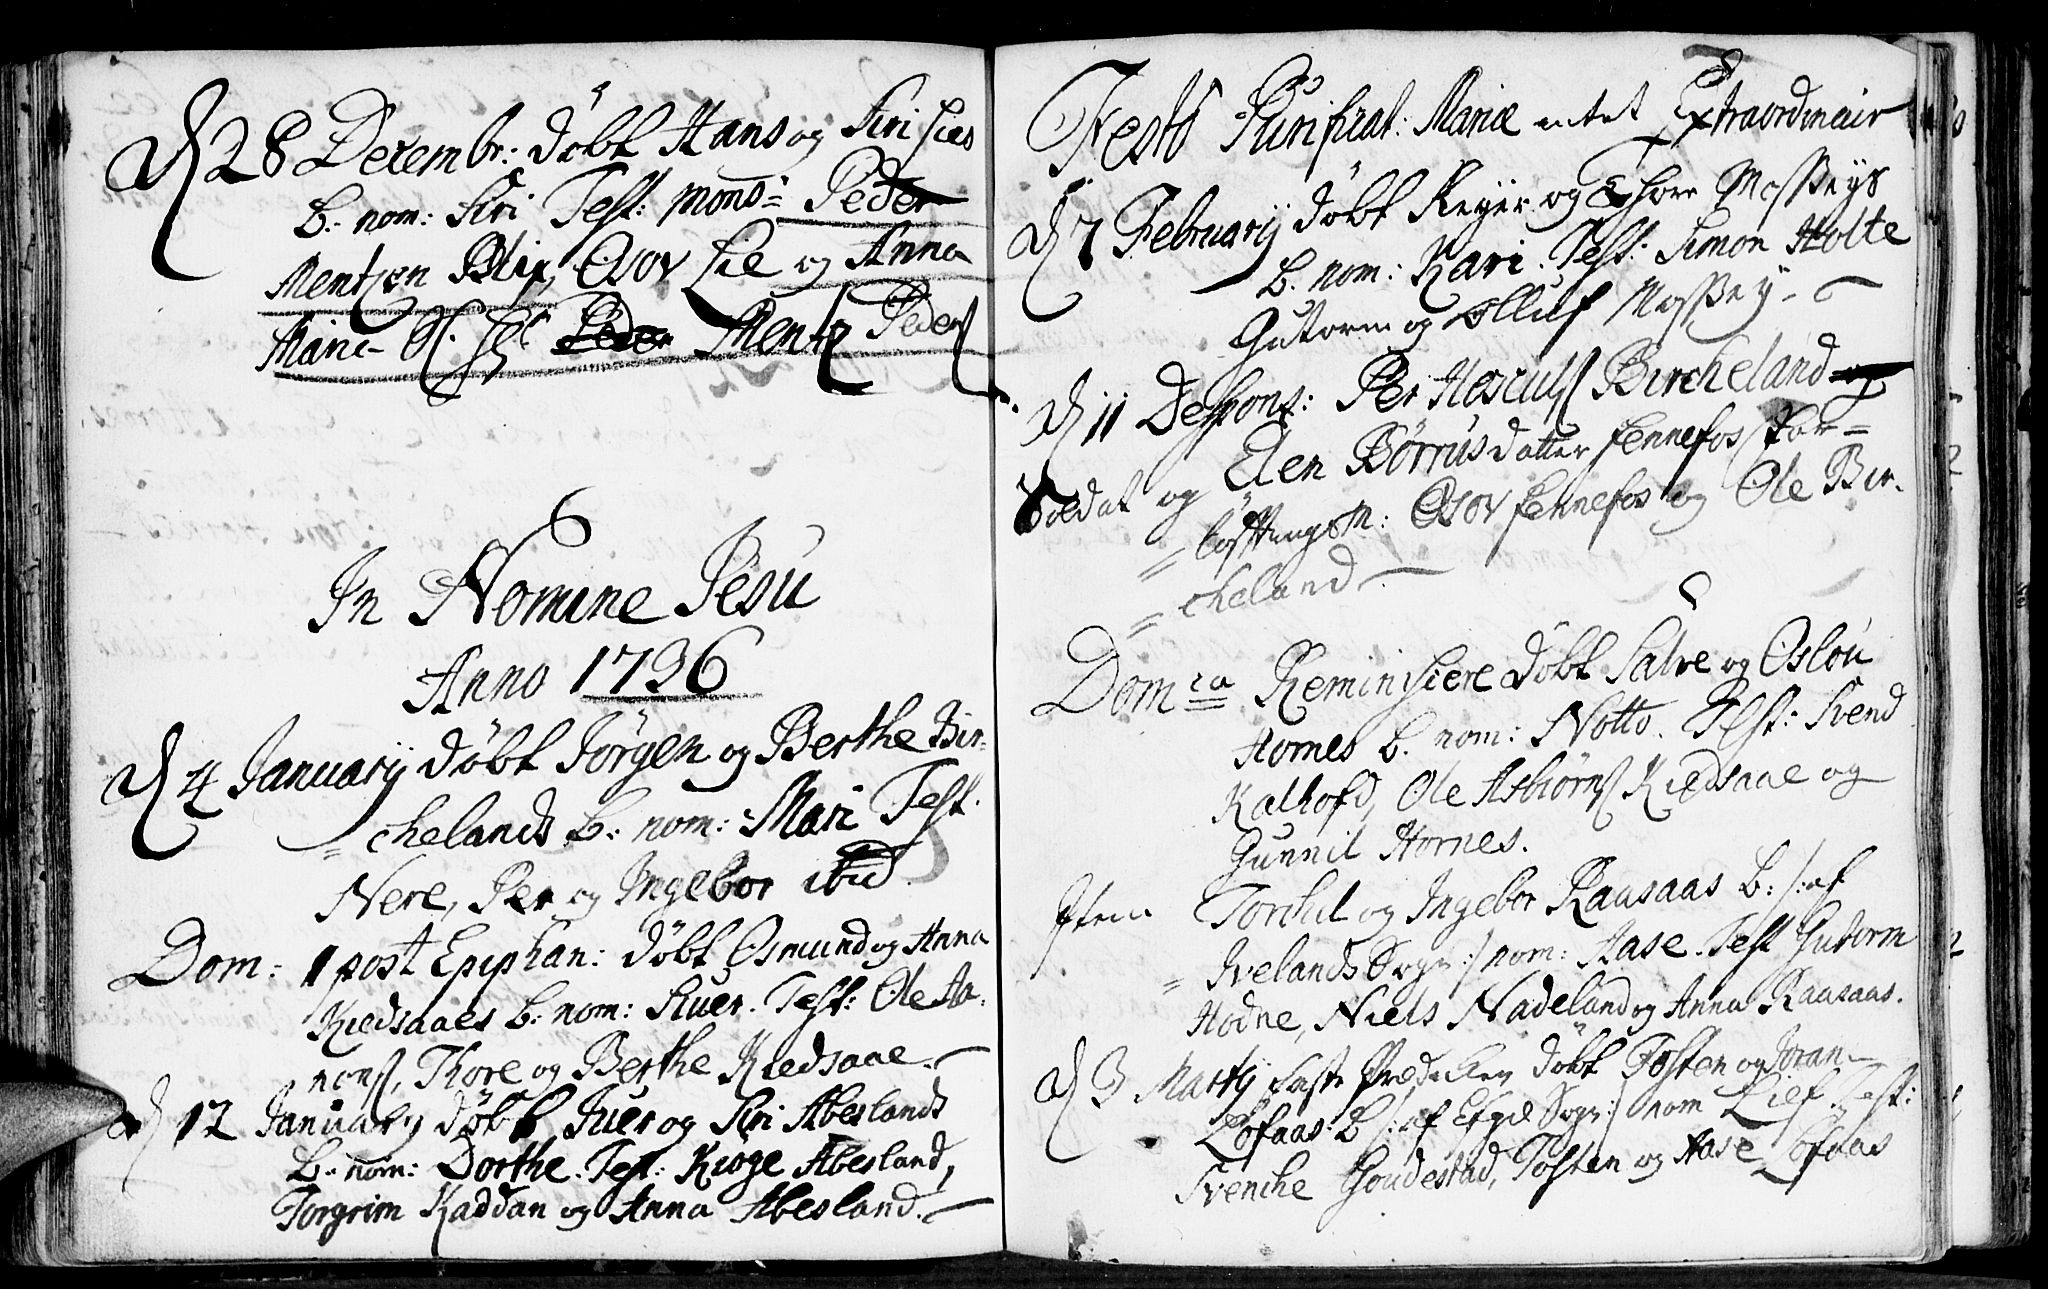 D 28 Decembr: döbt Hans og Siri Lies
B. nom: Siri Test: Mons: Peder
Mentzen Blix, Osov Lie og Anna
Marie Sl. Hr Peder Mentz Peders
In Nomine Jesu
Anno 1736
D 4 Januarij döbt Jörgen og Berthe Bir-
= chelands B: nom: Mari Test.
Nere, Per og Ingebor ibid.
Dom: 1 post Epiphan: döbt Osmund og Anna
Kiedsaaes B: nom: Siuer. Test: Ole Aa-
nons, Thore og Berthe Kiedsaae.
D 12 January döbt Iuer og Siri Abeslands
B. nom: Dorthe. Test: Kioge Abesland,
Torgrim Kaddan og Anna Abesland.
Festo Purificat: Mariæ intet Extraordinair
D 7 Februarij döbt Reyer og Thore Mosseys
B. nom: Kari. Test: Simon Holte
Gutorm og Olluf Mossey
D 11 Despons: Per Herculs Bircheland
Soldat og Elen Börrusdatter Fennefos For=
= löftningsm: Osov Fennefos og Ole Bir-
= cheland
Domca Reminiscere döbt Salve og Oslou
Hornes B. nom: Notto. Test: Svend
Kalhofd, Ole Asbiörns Kiedsaae og
Gunnil Hornes.
Item Torchil og Ingebor Raasaas B: /: af
= Ivelands Sogn :/ nom: Aase. Test Gutorm
Hodne, Niels Nadeland og Anna Raasaas.
D 3 Martij faste Prædicken döbt Tosten og Joran
Löfaas: B /: af Etzie Sogn :/ nom Lief. Test:
Svenche Goudestad, Tosten og Aase Löfaas